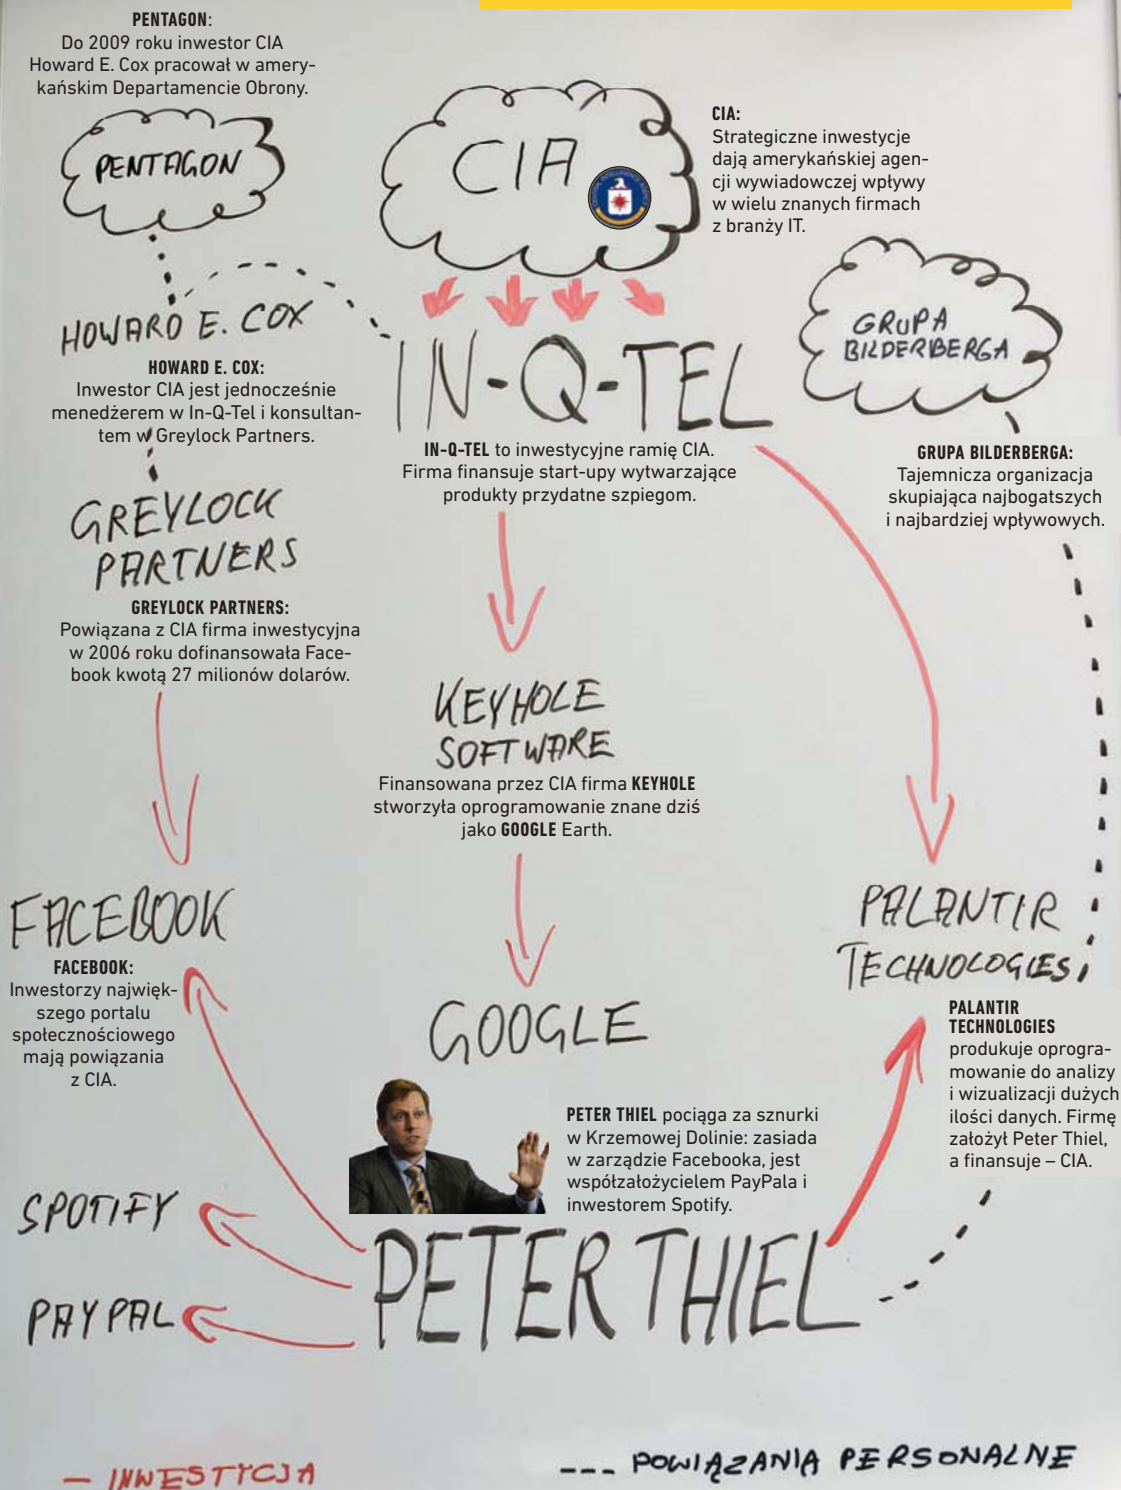 PENTAGON:
Do 2009 roku inwestor CIA
Howard E. Cox pracował w amery-
kańskim Departamencie Obrony.
PENTAGON
CIA
CIA:
Strategiczne inwestycje
dają amerykańskiej agen-
cji wywiadowczej wpływy
w wielu znanych firmach
z branży IT.
HOWARD E. COX
HOWARD E. COX:
Inwestor CIA jest jednocześnie
menedżerem w In-Q-Tel i konsultan-
tem w Greylock Partners.
IN-Q-TEL
IN-Q-TEL to inwestycyjne ramię CIA.
Firma finansuje start-upy wytwarzające
produkty przydatne szpiegom.
GRUPA
BILDERBERGA
GRUPA BILDERBERGA:
Tajemnicza organizacja
skupiająca najbogatszych
i najbardziej wpływowych.
GREYLOCK
PARTNERS
GREYLOCK PARTNERS:
Powiązana z CIA firma inwestycyjna
w 2006 roku dofinansowała Face-
book kwotą 27 milionów dolarów.
KEYHOLE
SOFTWARE
Finansowana przez CIA firma KEYHOLE
stworzyła oprogramowanie znane dziś
jako GOOGLE Earth.
FACEBOOK
FACEBOOK:
Inwestorzy najwięk-
szego portalu
społecznościowego
mają powiązania
z CIA.
GOOGLE
PALANTIR
TECHNOLOGIES
PALANTIR
TECHNOLOGIES
produkuje oprogra-
mowanie do analizy
i wizualizacji dużych
ilości danych. Firmę
założył Peter Thiel,
a finansuje – CIA.
PETER THIEL pociąga za sznurki
w Krzemowej Dolinie: zasiada
w zarządzie Facebooka, jest
współzałożycielem PayPala i
inwestorem Spotify.
SPOTIFY
PAYPAL
PETER THIEL
— INWESTYCJA
--- POWIĄZANIA PERSONALNE